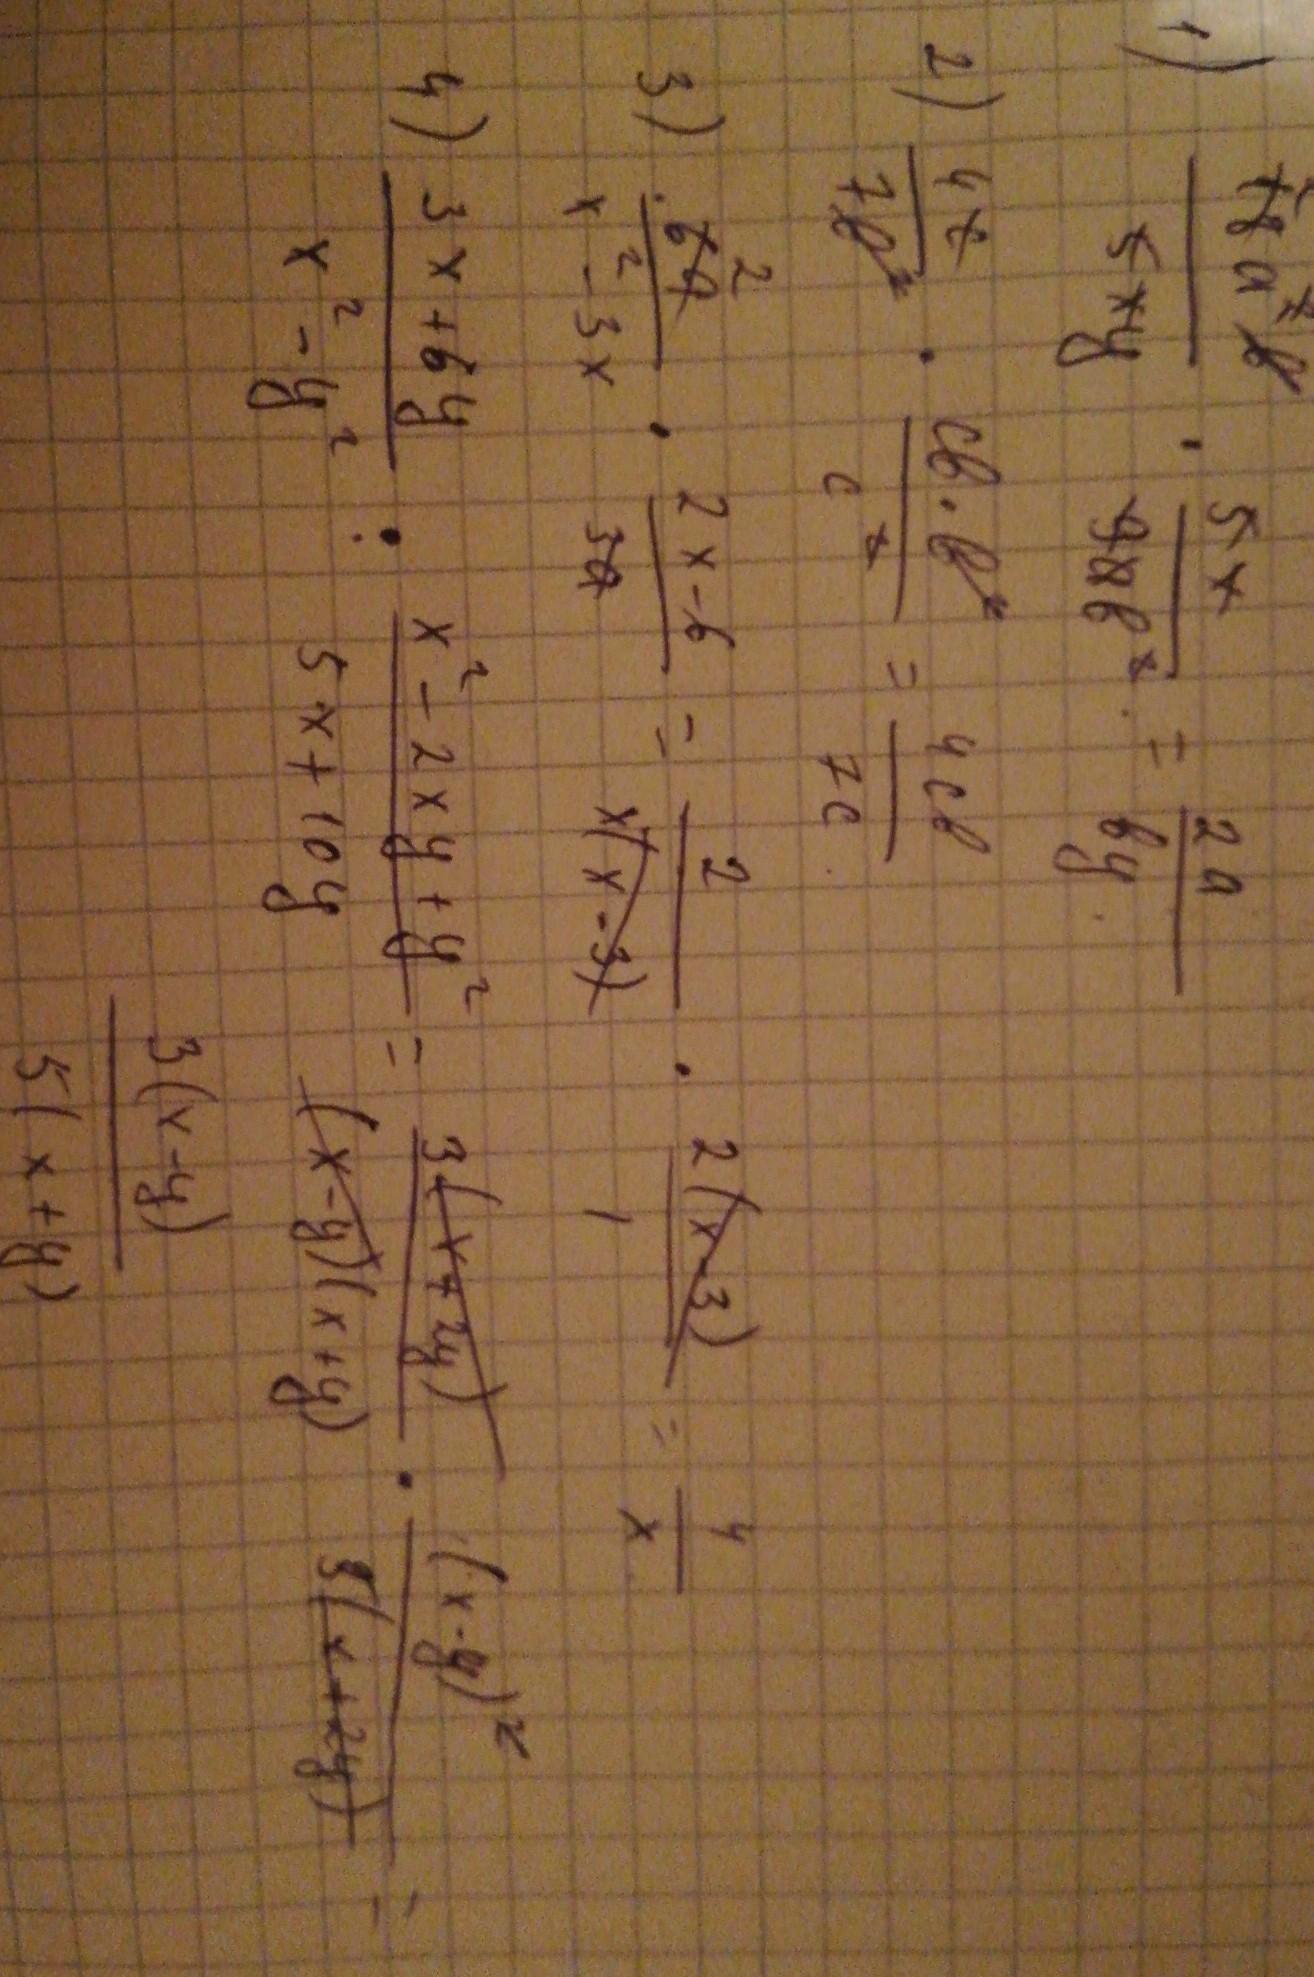 1) 18a²b / 5xy · 5x / 9ab² = 2a / by
2) 4c / 7b² · cb·b² / c² = 4cb / 7c
3) 6a / x² - 3x · 2x - 6 / 3a = 2 / x(x - 3) · 2(x - 3) / 1 = 4 / x
4) 3x + 6y / x² - y² · x² - 2xy + y² / 5x + 10y = 3(x + 2y) / (x - y)(x + y) · (x - y)² / 5(x + 2y) =
3(x - y) / 5(x + y)